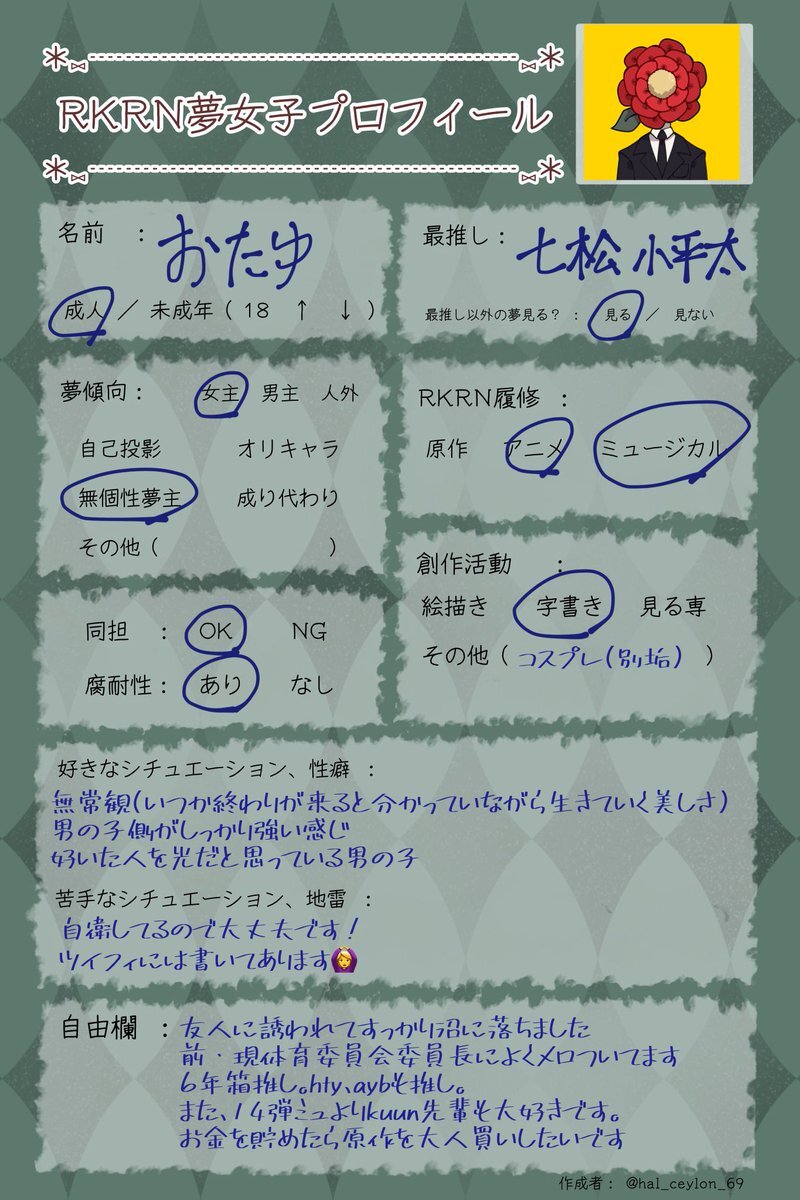 RKRN夢女子プロフィール
名前 : おたゆ
成人 / 未成年 ( 18 ↑ ↓ )
最推し : 七松 小平太
最推し以外の夢見る? : 見る / 見ない
夢傾向 : 女主 男主 人外
自己投影 オリキャラ
無個性夢主 成り代わり
その他 ( )
RKRN履修 :
原作 アニメ ミュージカル
創作活動 :
絵描き 字書き 見る専
その他 ( コスプレ(別垢) )
同担 : OK NG
腐耐性 : あり なし
好きなシチュエーション、性癖 :
無常観(いつか終わりが来ると分かっていながら生きていく美しさ)
男の子側がしっかり強い感じ
好いた人を光だと思っている男の子
苦手なシチュエーション、地雷 :
自衛してるので大丈夫です!
ツイフィには書いてあります🙆‍♀️
自由欄 : 友人に誘われてすっかり沼に落ちました
前・現体育委員会委員長によくメロついてます
6年箱推し。hty、aybも推し。
また、14弾ミュよりkuun先輩も大好きです。
お金を貯めたら原作を大人買いしたいです
作成者 : @hal_ceylon_69